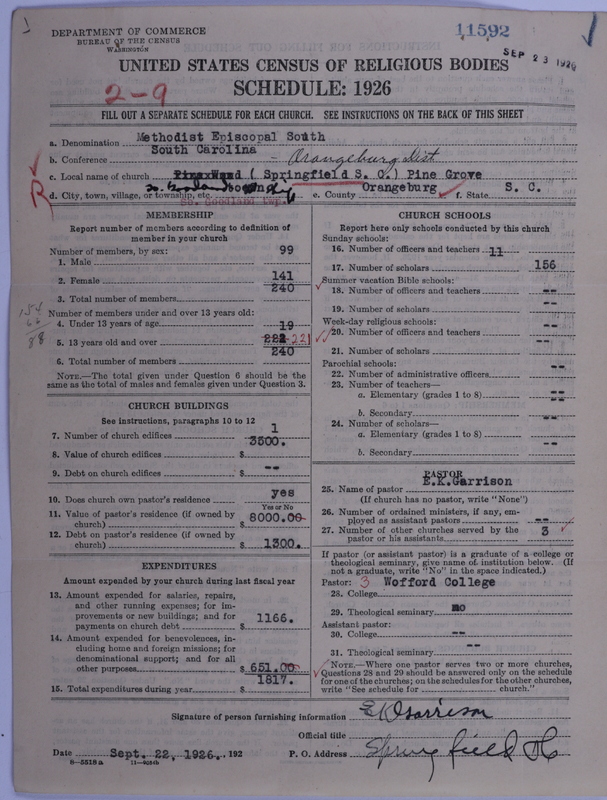 DEPARTMENT OF COMMERCE
BUREAU OF THE CENSUS
WASHINGTON
11592
SEP 23 1926
UNITED STATES CENSUS OF RELIGIOUS BODIES
SCHEDULE: 1926
2-9
FILL OUT A SEPARATE SCHEDULE FOR EACH CHURCH. SEE INSTRUCTIONS ON THE BACK OF THIS SHEET
a. Denomination Methodist Episcopal South
b. Conference South Carolina - Orangeburg Dist
c. Local name of church (Springfield S. C.) Pine Grove
R
d. City, town, village, or township, etc. So. Goodland twp. e. County Orangeburg f. State S. C.
MEMBERSHIP
Report number of members according to definition of
member in your church
Number of members, by sex:
1. Male 99
2. Female 141
3. Total number of members 240
Number of members under and over 13 years old:
4. Under 13 years of age 19
5. 13 years old and over 221
6. Total number of members 240
NOTE.—The total given under Question 6 should be the
same as the total of males and females given under Question 3.
CHURCH BUILDINGS
See instructions, paragraphs 10 to 12
7. Number of church edifices 1
8. Value of church edifices $ 3500.
9. Debt on church edifices $ --
10. Does church own pastor's residence yes
Yes or No
11. Value of pastor's residence (if owned by
church) $ 8000.00
12. Debt on pastor's residence (if owned by
church) $ 1300.
EXPENDITURES
Amount expended by your church during last fiscal year
13. Amount expended for salaries, repairs,
and other running expenses; for im-
provements or new buildings; and for
payments on church debt $ 1166.
14. Amount expended for benevolences, in-
cluding home and foreign missions; for
denominational support; and for all
other purposes $ 651.00
15. Total expenditures during year $ 1817.
CHURCH SCHOOLS
Report here only schools conducted by this church
Sunday schools:
16. Number of officers and teachers 11
17. Number of scholars 156
Summer vacation Bible schools:
18. Number of officers and teachers --
19. Number of scholars --
Week-day religious schools:
20. Number of officers and teachers --
21. Number of scholars --
Parochial schools:
22. Number of administrative officers --
23. Number of teachers—
a. Elementary (grades 1 to 8) --
b. Secondary --
24. Number of scholars—
a. Elementary (grades 1 to 8) --
b. Secondary
PASTOR
25. Name of pastor E.K.Garrison
(If church has no pastor, write "None")
26. Number of ordained ministers, if any, em-
ployed as assistant pastors --
27. Number of other churches served by the
pastor or his assistants 3
If pastor (or assistant pastor) is a graduate of a college or
theological seminary, give name of institution below. (If
not a graduate, write "No" in the space indicated.)
Pastor: 3
28. College Wofford College
29. Theological seminary no
Assistant pastor:
30. College --
31. Theological seminary --
NOTE.—Where one pastor serves two or more churches,
Questions 28 and 29 should be answered only on the schedule
for one of the churches; on the schedules for the other churches,
write "See schedule for church."
Signature of person furnishing information E K Garrison
Official title
Date Sept. 22, 1926. 192
P. O. Address Springfield SC
8-5518a